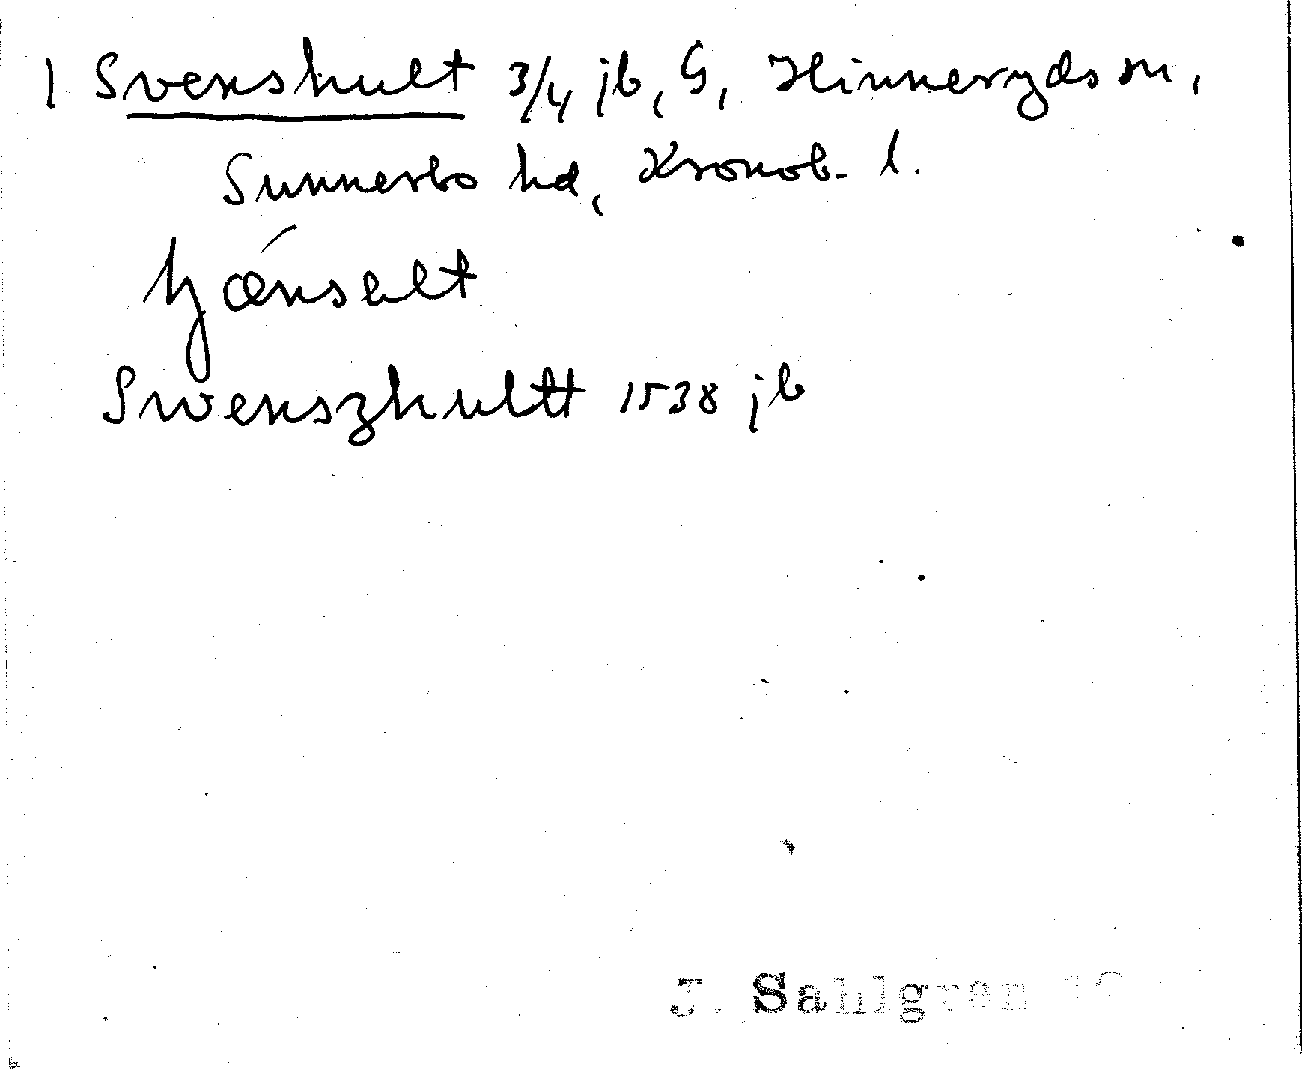 1 Svenshult 3/4 jb, G, Hinneryds sn,
Sunnerbo hd, Kronob. l.
Swenszhultt 1538 jb
J. Sahlgren